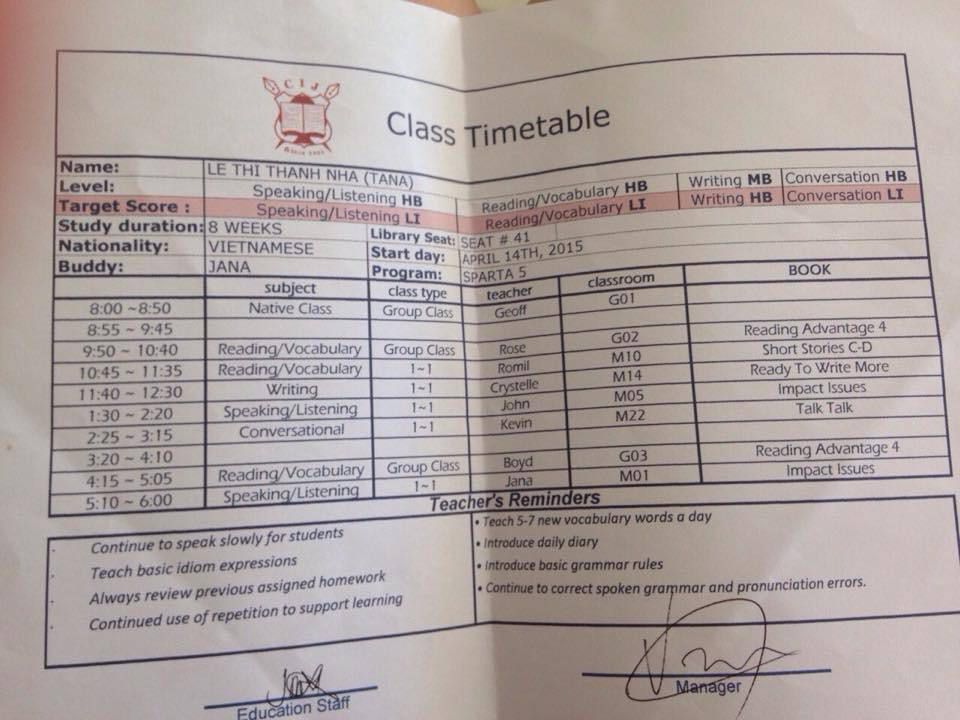 C I J
Class Timetable
Name: LE THI THANH NHA (TANA)
Level: Speaking/Listening HB Reading/Vocabulary HB Writing MB Conversation HB
Target Score : Speaking/Listening LI Reading/Vocabulary LI Writing HB Conversation LI
Study duration: 8 WEEKS Library Seat: SEAT # 41
Nationality: VIETNAMESE Start day: APRIL 14TH, 2015
Buddy: JANA Program: SPARTA 5
subject class type teacher classroom BOOK
8:00 ~8:50 Native Class Group Class Geoff G01
8:55 ~ 9:45
9:50 ~ 10:40 Reading/Vocabulary Group Class Rose G02 Reading Advantage 4
10:45 ~ 11:35 Reading/Vocabulary 1~1 Romil M10 Short Stories C-D
11:40 ~ 12:30 Writing 1~1 Crystelle M14 Ready To Write More
1:30 ~ 2:20 Speaking/Listening 1~1 John M05 Impact Issues
2:25 ~ 3:15 Conversational 1~1 Kevin M22 Talk Talk
3:20 ~ 4:10
4:15 ~ 5:05 Reading/Vocabulary Group Class Boyd G03 Reading Advantage 4
5:10 ~ 6:00 Speaking/Listening 1~1 Jana M01 Impact Issues
Teacher's Reminders
· Continue to speak slowly for students
· Teach basic idiom expressions
· Always review previous assigned homework
· Continued use of repetition to support learning
• Teach 5-7 new vocabulary words a day
• Introduce daily diary
• Introduce basic grammar rules
• Continue to correct spoken grammar and pronunciation errors.
Education Staff
Manager